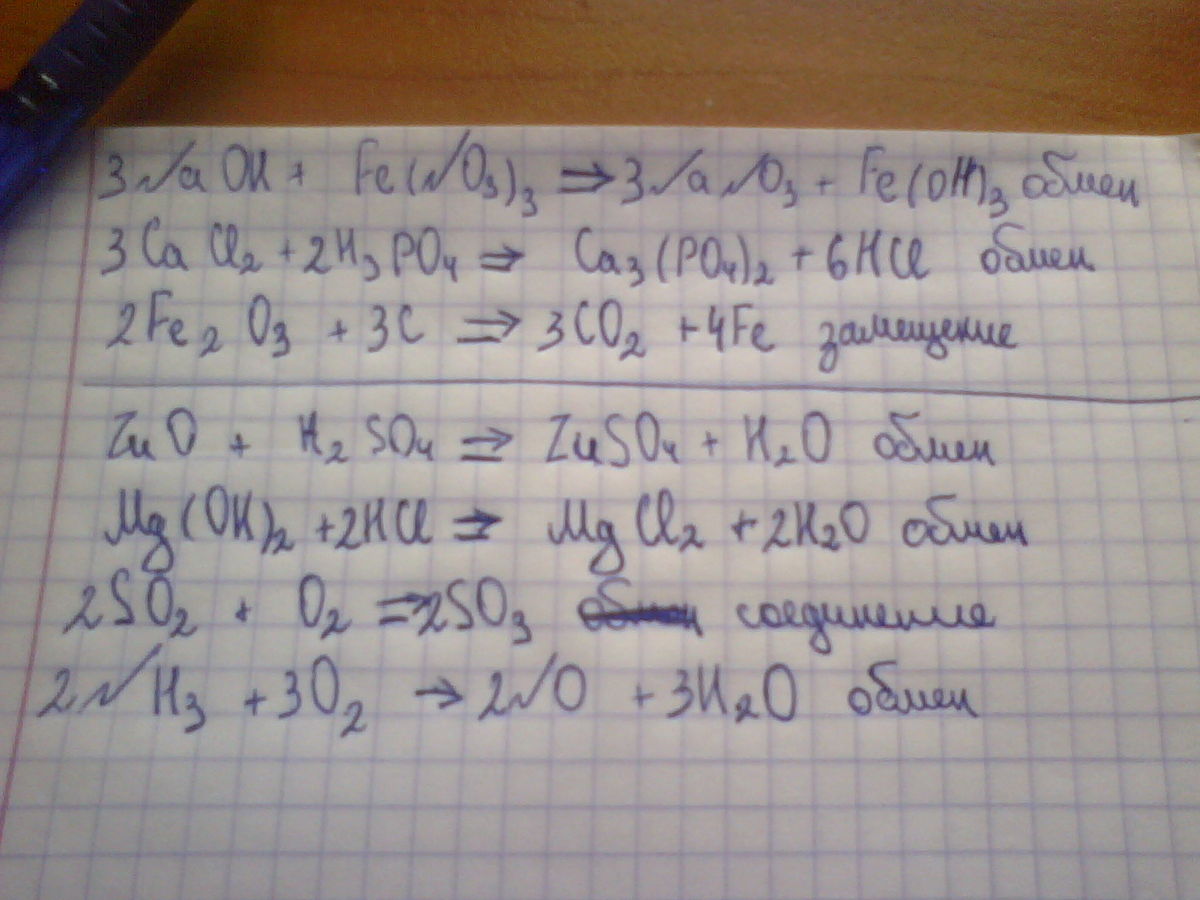 3NaOH + Fe(NO₃)₃ ⇒ 3NaNO₃ + Fe(OH)₃ обмен
3CaCl₂ + 2H₃PO₄ ⇒ Ca₃(PO₄)₂ + 6HCl обмен
2Fe₂O₃ + 3C ⇒ 3CO₂ + 4Fe замещение
ZnO + H₂SO₄ ⇒ ZnSO₄ + H₂O обмен
Mg(OH)₂ + 2HCl ⇒ MgCl₂ + 2H₂O обмен
2SO₂ + O₂ ⇒ 2SO₃ обмен соединение
2NH₃ + 3O₂ → 2NO + 3H₂O обмен